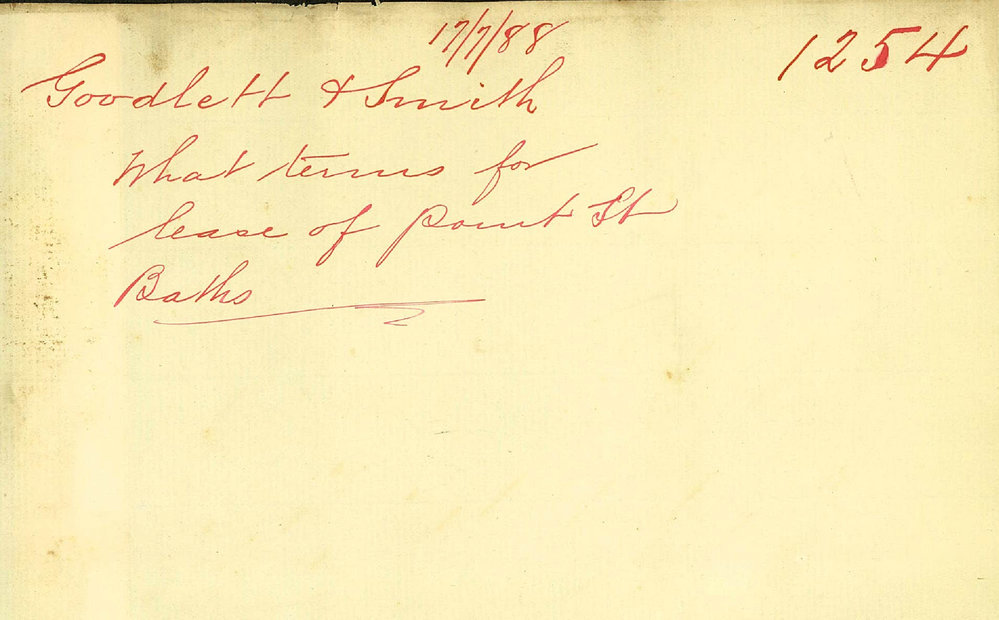 17/7/88
1254
Goodlett & Smith
What terms for
lease of Point St
Baths